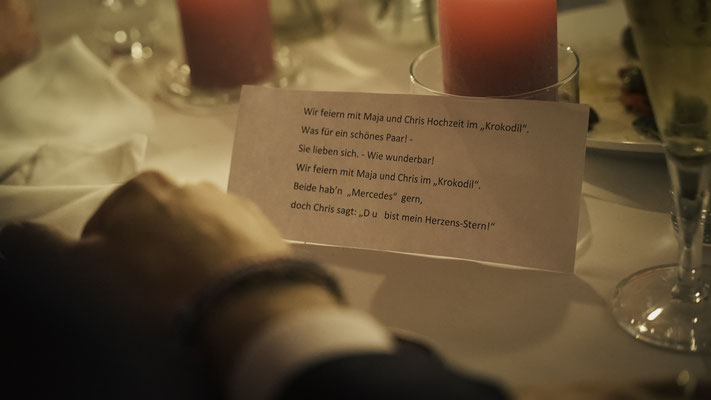 Wir feiern mit Maja und Chris Hochzeit im „Krokodil“.
Was für ein schönes Paar! -
Sie lieben sich. - Wie wunderbar!
Wir feiern mit Maja und Chris im „Krokodil“.
Beide hab'n „Mercedes“ gern,
doch Chris sagt: „D u bist mein Herzens-Stern!“